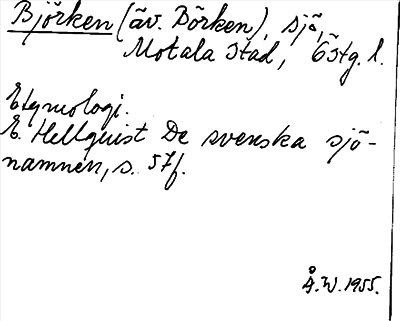 Björken (äv. Börken), sjö,
Motala stad, Östg. l.
Etymologi.
E. Hellquist De svenska sjö-
namnen, s. 57f.
Å.W. 1955.